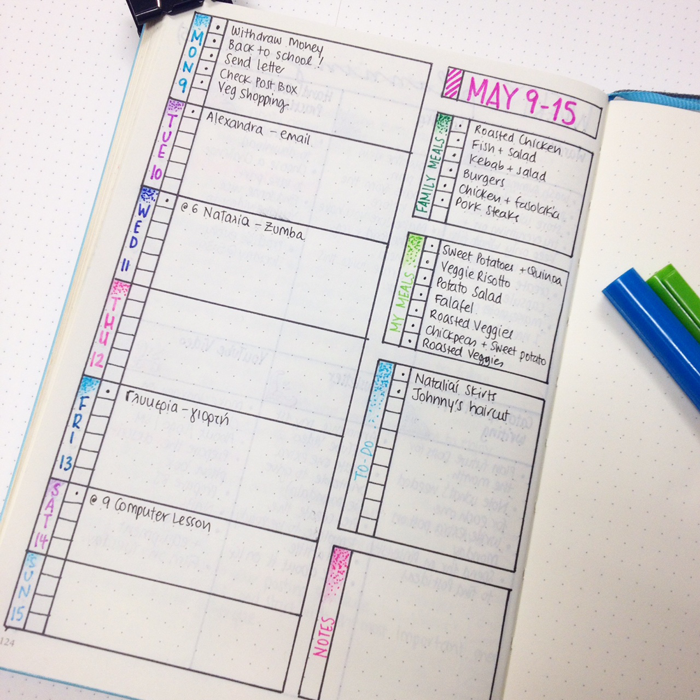 MON 9
Withdraw Money
Back to school!
Send Letter
Check Post Box
Veg Shopping
TUE 10
Alexandra - email
WED 11
@ 6 Natalia - Zumba
THU 12
FRI 13
Γλυκερία - γιορτή
SAT 14
@ 9 Computer Lesson
SUN 15
124
MAY 9-15
FAMILY MEALS
Roasted Chicken
Fish + Salad
Kebab + salad
Burgers
Chicken + fasolakia
Pork Steaks
MY MEALS
Sweet Potatoes + Quinoa
Veggie Risotto
Potato Salad
Falafel
Roasted Veggies
Chickpeas + Sweet potato
Roasted Veggies
TO-DO
Natalias Skirts
Johnny's haircut
NOTES